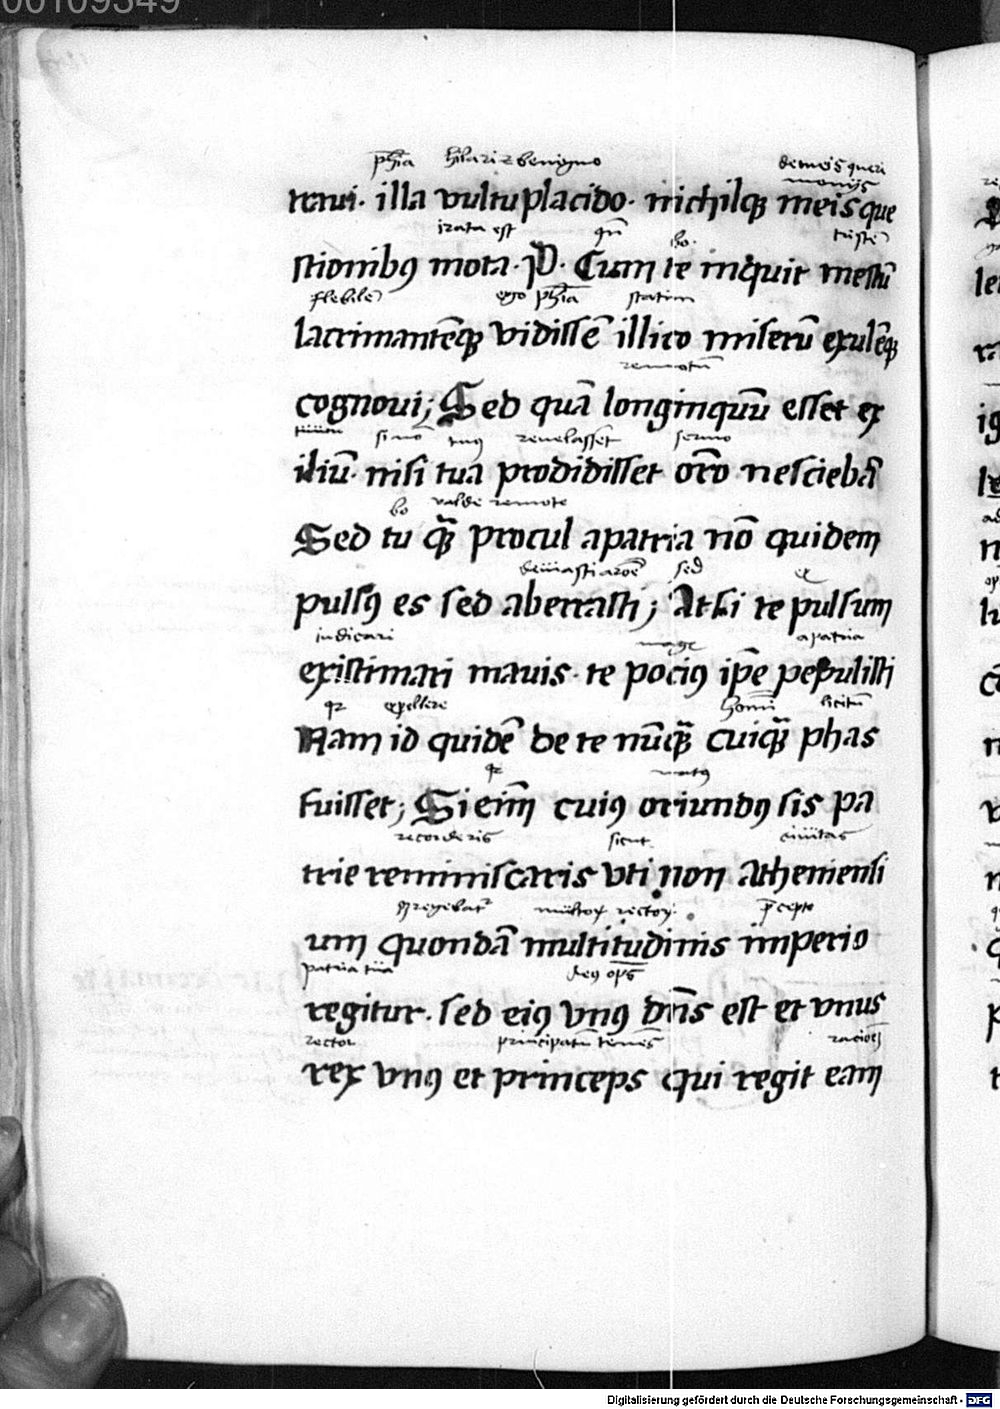 00109349
ph̄ia hilari ⁊ benigno de meis queri
monijs
traui· illa vultu placido· nichilqꝫ meis que
irata est qn̄ bo· tristē
stionibꝯ mota· P· Cum te inquit mestū
flebilē ergo ph̄ia statim
lacrimantēqꝫ vidissē illico miserū exulēqꝫ
remotū
cognoui; Sed quā longinquū esset ex
tuum sermo tuꝯ reuelasset sermo
iliū· nisi tua prodidisset or̄o nesciebā
bo valde remote
Sed tu qꝫ̄ procul a patria nō quidem
sed
pulsꝯ es sed aberrasti; At si te pulsum
iudicari mage a patria
existimari mauis· te pociꝯ ip̄e pepulisti
qꝛ expellere homī licitū
Nam id quidē de te nūqꝫ̄ cuiqꝫ̄ phas
qꝛ natꝯ
fuisset; Si enī cuiꝯ oriundꝯ sis pa
recorderis sicut ciuitas
trie reminiscaris vti non atheniensi
regebat᷑ multoꝝ rectoꝝ p̄cepto
um quondā multitudinis imperio
patria tua deꝯ op̄s
regitur· sed eiꝯ vnꝯ dn̄s est et vnus
rector principatū tenēs
rex vnꝯ et princeps qui regit eam
Digitalisierung gefördert durch die Deutsche Forschungsgemeinschaft - DFG